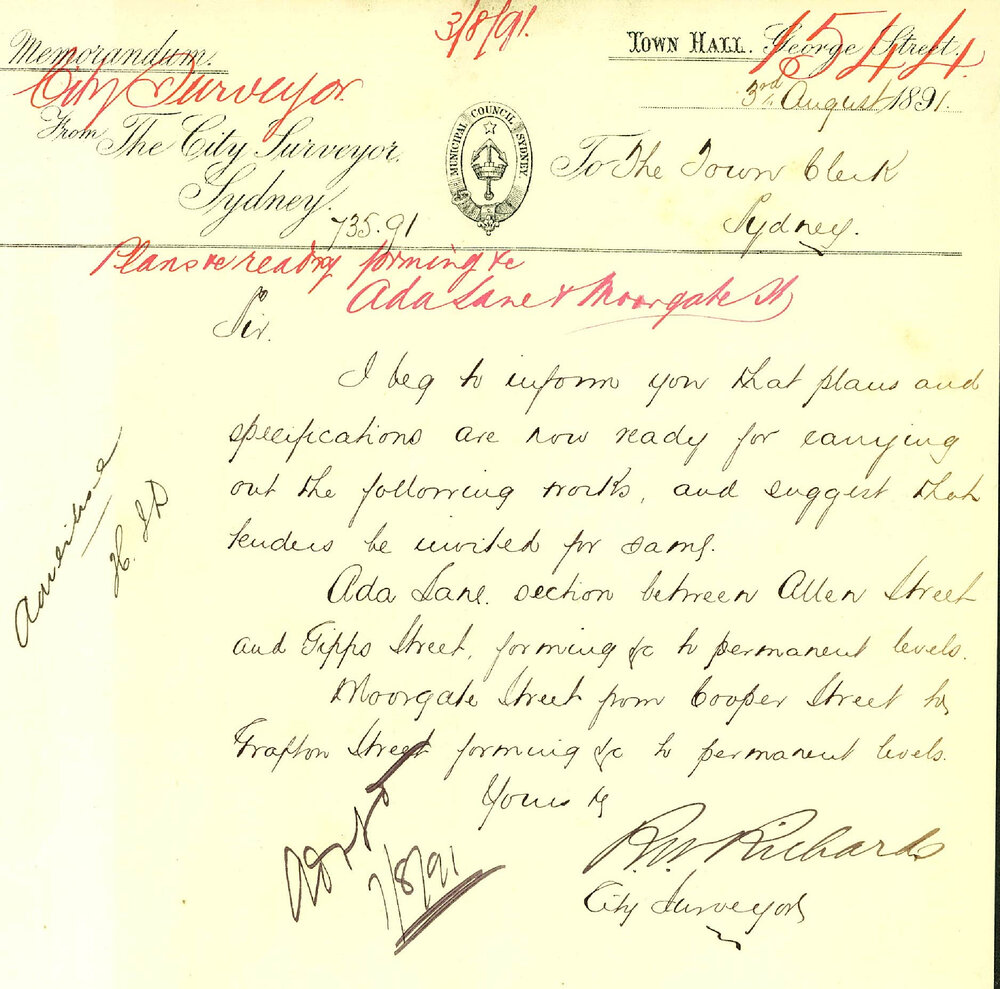 3/8/91.
Memorandum.
TOWN HALL. George Street.
1544.
City Surveyor
3rd August 1891.
From The City Surveyor,
Sydney.
MUNICIPAL COUNCIL SYDNEY.
To The Town Clerk
Sydney.
735.91
Plans &c ready forming &c
Ada Lane & Moorgate St
Sir.
I beg to inform you that plans and
specifications are now ready for carrying
out the following works, and suggest that
tenders be invited for same.
Ada Lane. section between Allen Street
and Gipps Street, forming &c to permanent levels.
Moorgate Street from Cooper Street to
Grafton Street forming &c to permanent levels.
Yours &c
R.W. Richards
City Surveyor
Advertise
7/8/91